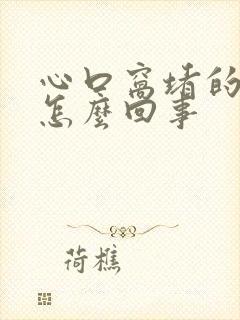 心口窩堵的
怎麼回事
荷樵